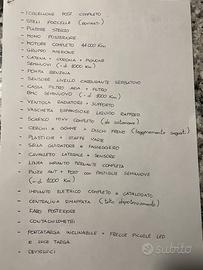 - FORCELLONE POST COMPLETO
- STELI FORCELLA
- PIASTRE STERZO
- MONO POSTERIORE
- MOTORE COMPLETO 44000 Km
- GRUPPO
- CATENA + CORONA + PIGNONE
SEMINUOVI (- di 1000 Km)
- POMPA BENZINA
- SENSORE LIVELLO CARBURANTE SERBATOIO
- CASSA FILTRO ARIA + FILTRO
BMC SEMINUOVO (- di 1000 Km)
- VENTOLA RADIATORI + SUPPORTO
- VASCHETTA ESPANSIONE LIQUIDO RAFFREDD
- SCARICO COMPLETO
- CERCHI + GOMME + DISCHI FRENO (leggermente segnati)
- PLASTICHE + STAFFE VARIE
- SELLA GUIDATORE + PASSEGGERO
- CAVALLETTO LATERALE + SENSORE
- LINEA IMPIANTO FRENANTE COMPLETA
- PINZE ANT + POST CON PASTIGLIE SEMINUOVE
(- di 1000 Km)
- IMPIANTO ELETTRICO COMPLETO E CATALOGATO
- CENTRALINA RIMAPPATA
- FARO POSTERIORE
- CONTACHILOMETRI
- PORTATARGA INCLINABILE + FRECCE PICCOLE LED
E LUCE TARGA
- DEVIOLUCI
subito